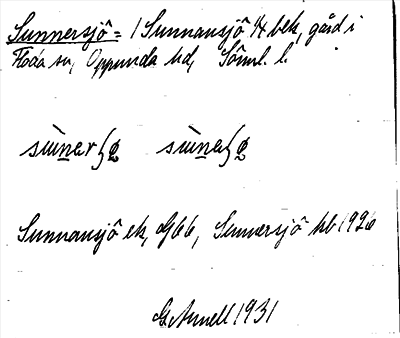 Sunnersjö = 1 Sunnansjö 14 bek, gård i
Floda sn, Oppunda hd, Söml. l.
sùnar ʃø sùna ʃø
Sunnansjö ek, G66, Sunnersjö hb 1926
G. Annell 1931